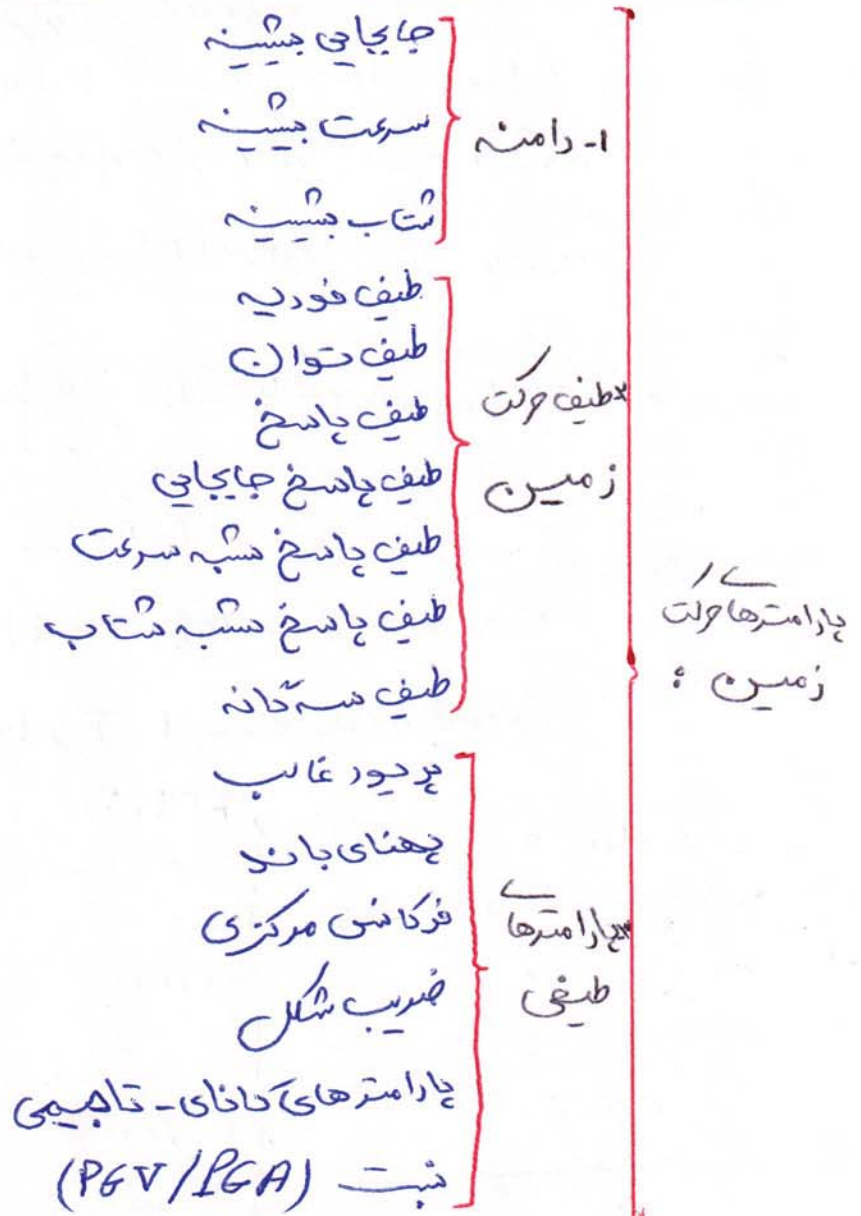 پارامترهای حرکت
زمین :
۱- دامنه
جابجایی بیشینه
سرعت بیشینه
شتاب بیشینه
*طیف حرکت
زمین
طیف فوریه
طیف توان
طیف پاسخ
طیف پاسخ جابجایی
طیف پاسخ شبه سرعت
طیف پاسخ شبه شتاب
طیف سه گانه
*پارامترهای
طیفی
پریود غالب
پهنای باند
فرکانس مرکزی
ضریب شکل
پارامترهای کانای - تاجیمی
نسبت (PGV/PGA)